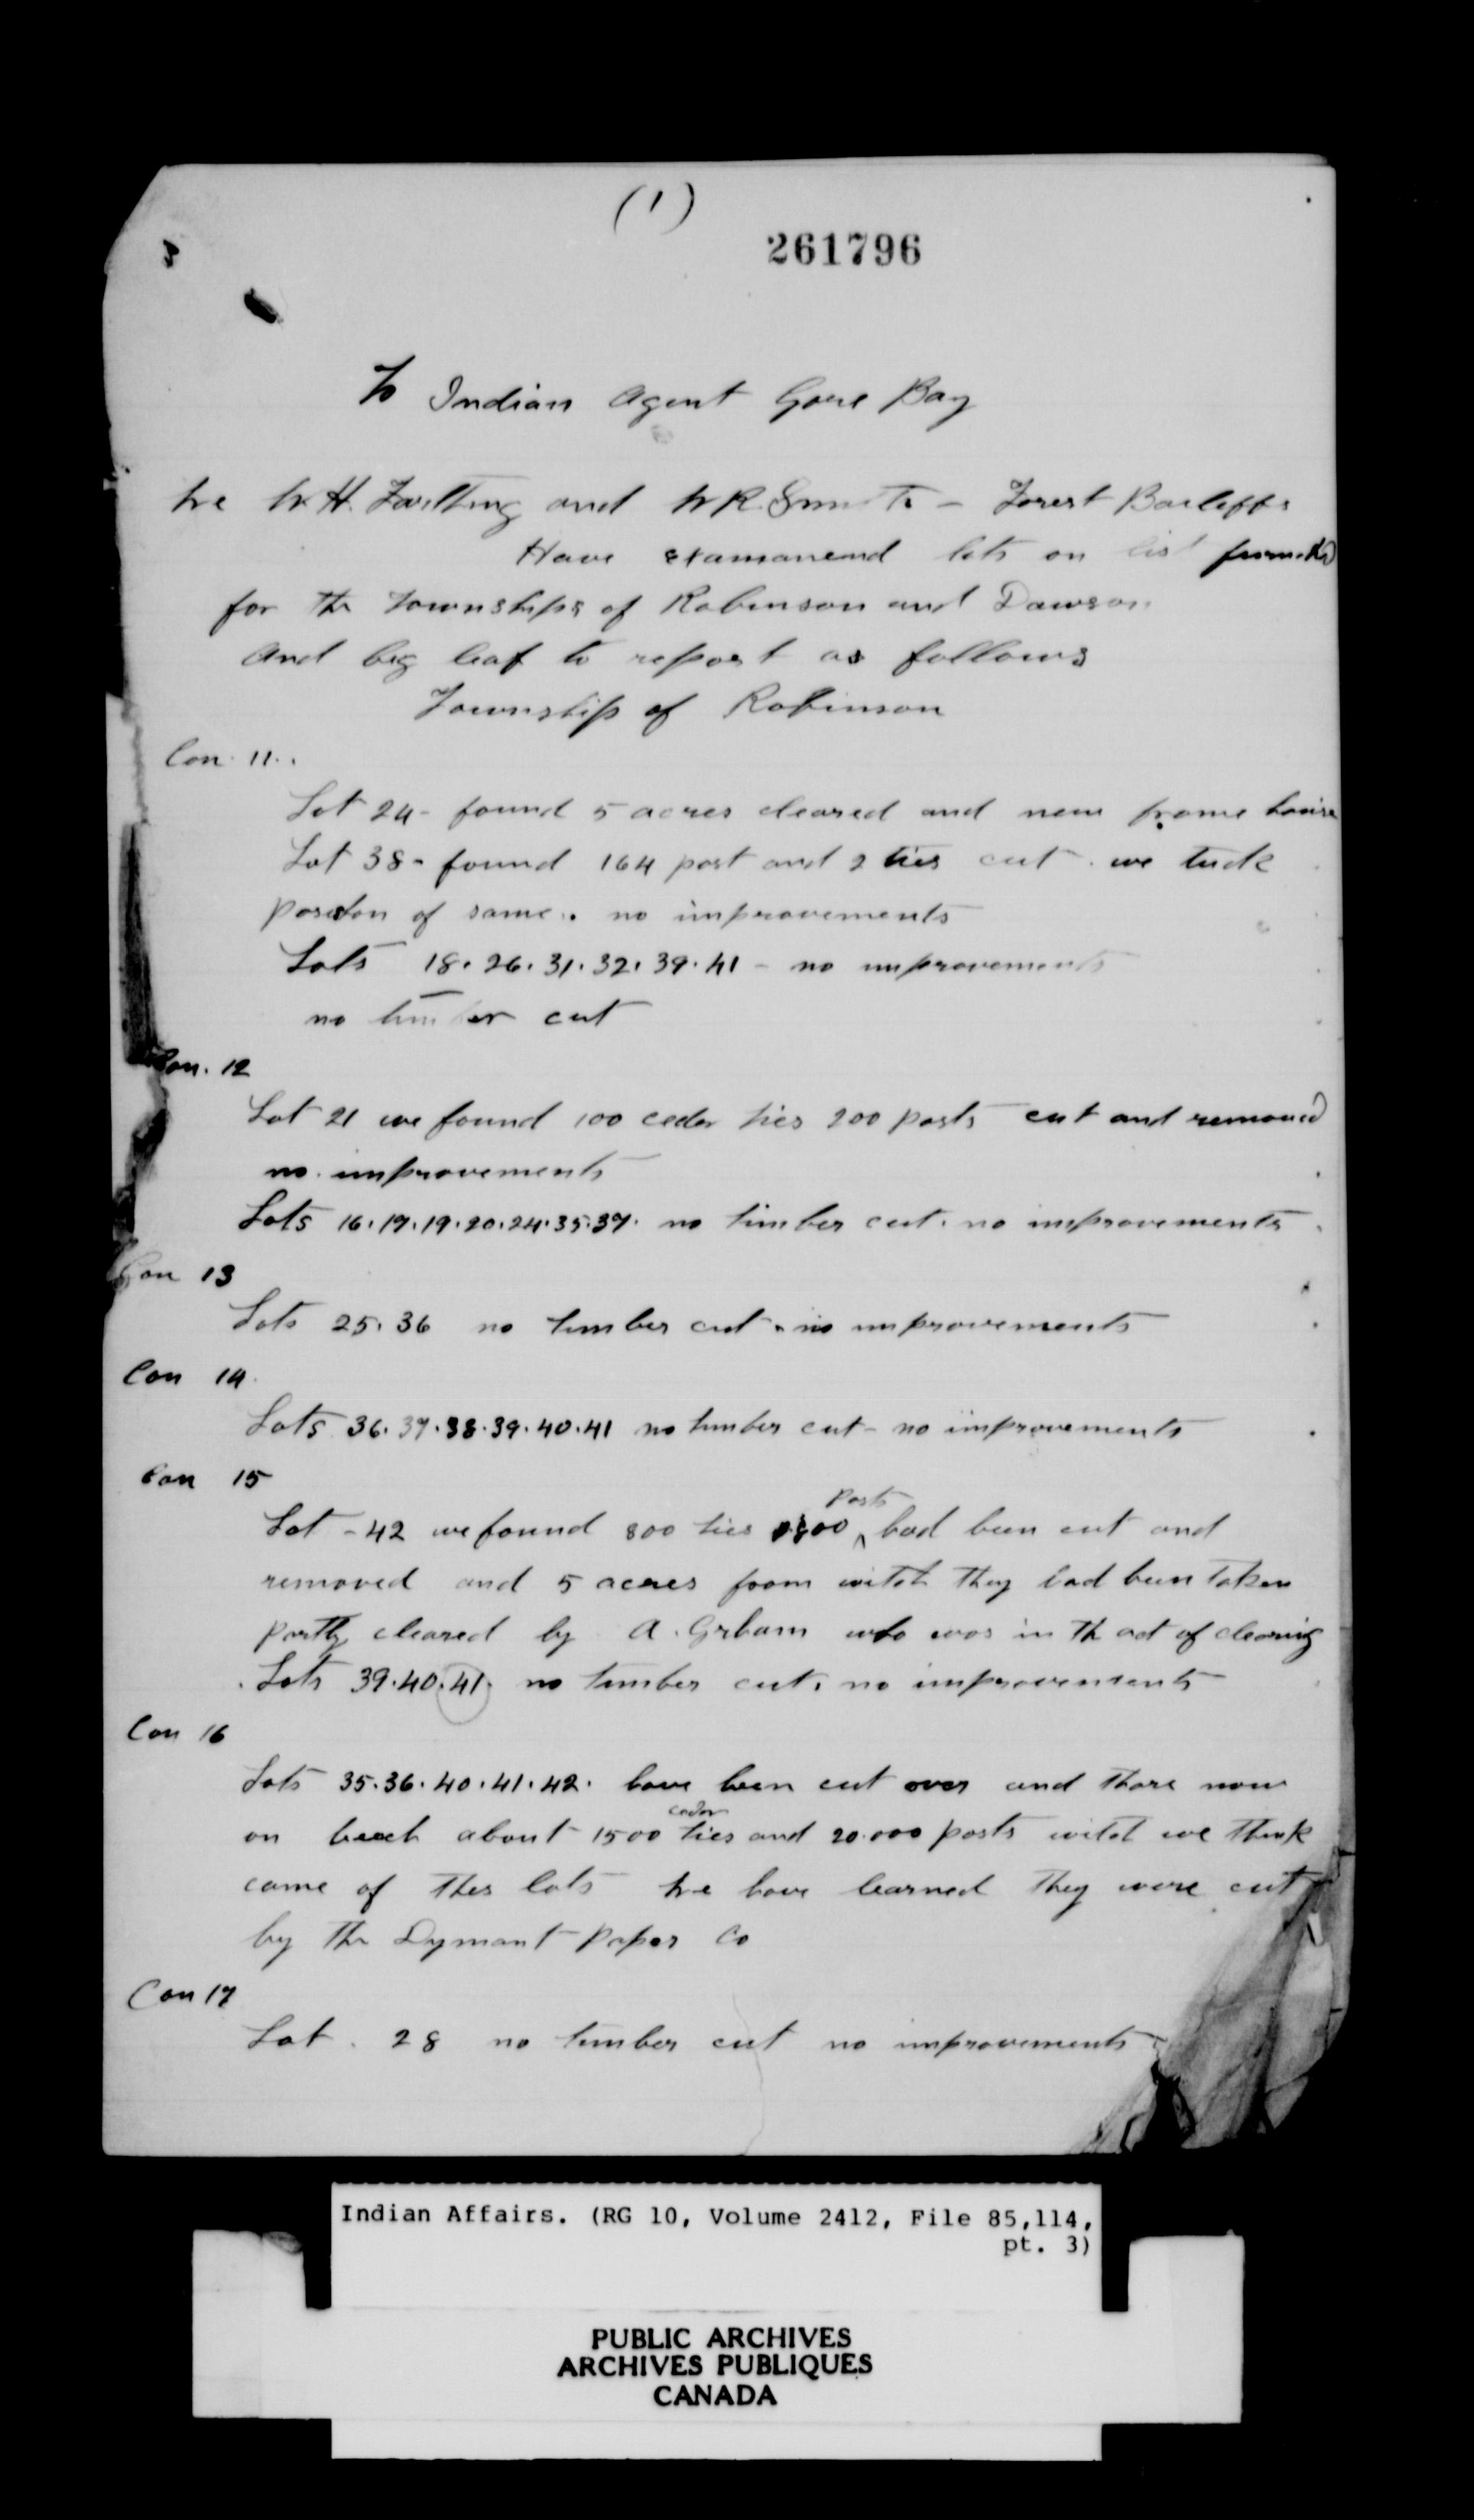 (1)
261796
3
To Indian Agent Gore Bay
We W.H. and W R Smith - Forest Bailiffs
Have examanend lots on list
for the Townships of Robinson and Dawson
and beg leaf to report as follows
Township of Robinson
Con. 11.
Lot 24- found 5 acres cleared and new frame house
Lot 38- found 164 post and 2 ties cut. we tuck
of same. no improvements
Lots 18.26.31.32.39.41 - no improvements
no timber cut
Con. 12
Lot 21 we found 100 ceder ties 200 posts cut and removed
no improvements
Lots 16.17.19.20.24.35.37. no timber cut. no improvements
Con 13
Lots 25.36 no timber cut. no improvements
Con 14
Lots 36.37.38.39.40.41 no timber cut - no improvements
Con 15
posts
Lot - 42 we found 800 ties had been cut and
removed and 5 acres from witch they had been taken
partly cleared by A. Grham who was in th act of clearing
Lots 39.40.41. no timber cut. no improvements
Con 16
ceder
Lots 35.36.40.41.42. have been cut over and thare now
on beach about 1500 ties and 20.000 posts witch we think
came of thes lots We have learned they were cut
by the Dymant Paper Co
Con 17
Lot. 28 no timber cut no improvements
Indian Affairs. (RG 10, Volume 2412, File 85,114,
pt. 3)
PUBLIC ARCHIVES
ARCHIVES PUBLIQUES
CANADA